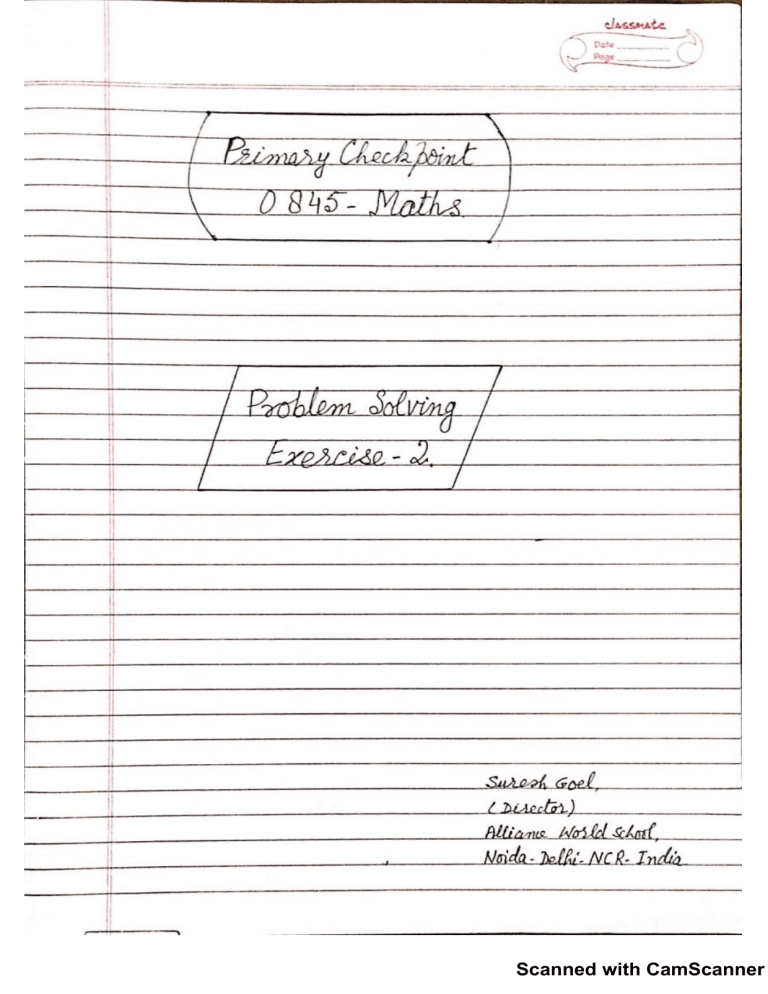 classmate
Date
Page
Primary Checkpoint
0845 - Maths
Problem Solving
Exercise - 2.
Suresh Goel,
(Director)
Alliance World School,
Noida - Delhi - NCR - India
Scanned with CamScanner